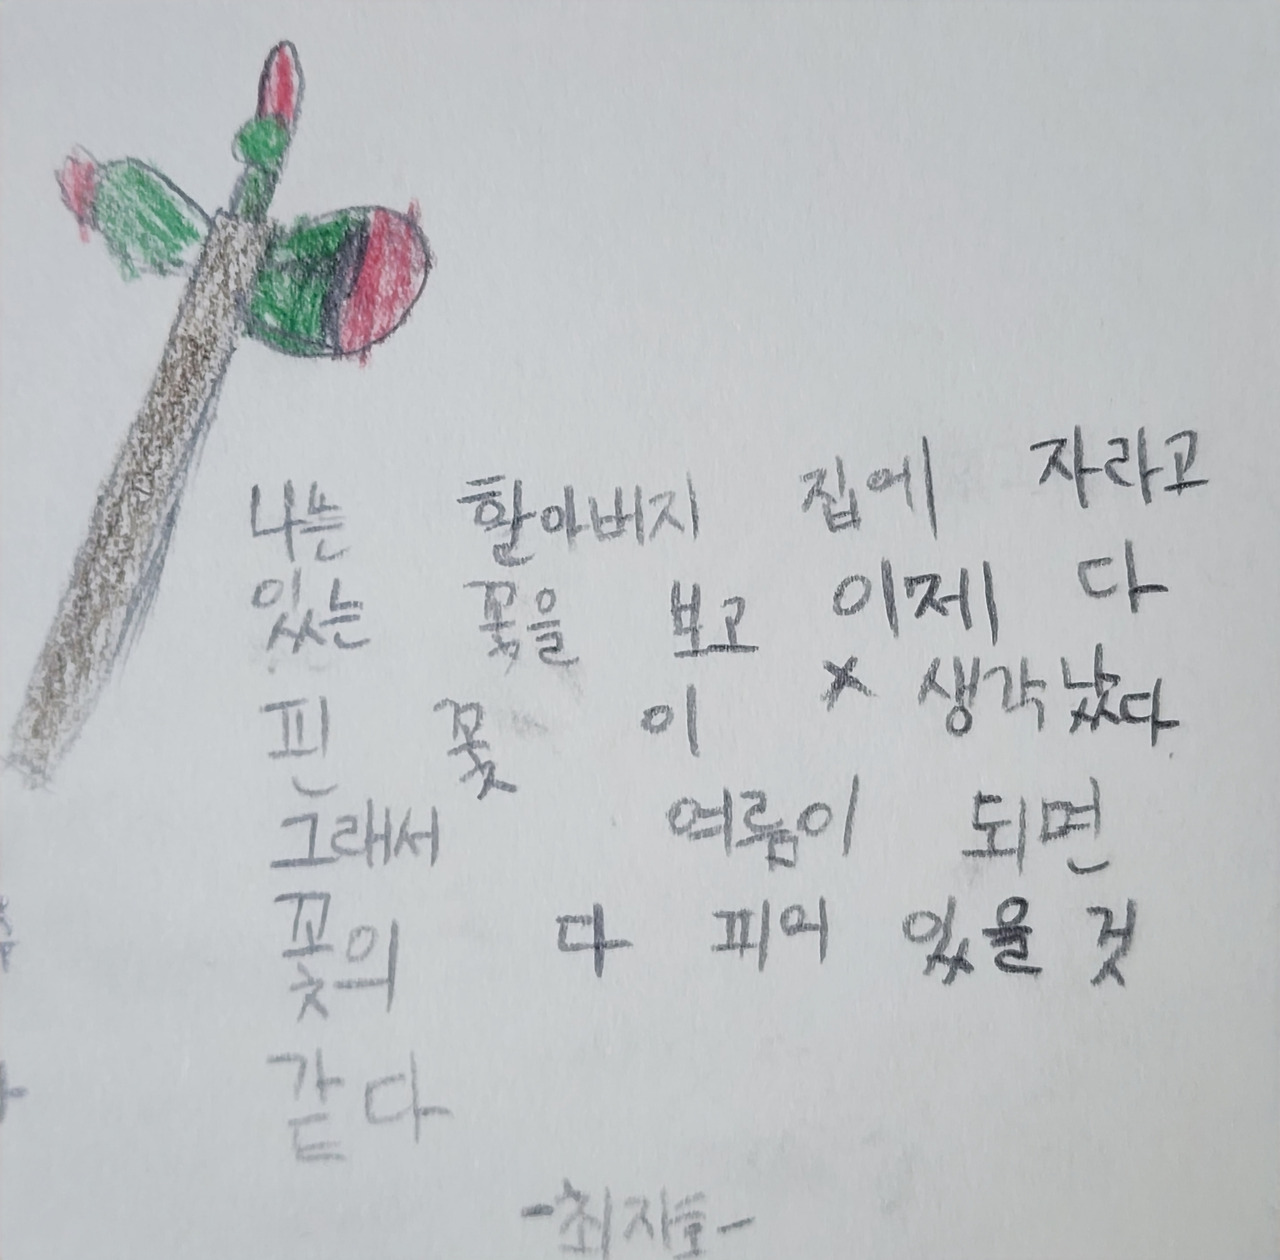 나는 할아버지 집에 자라고
있는 꽃을 보고 이제 다
핀 꽃 이 × 생각났다.
그래서 여름이 되면
꽃의 다 피어 있을 것
같다
-최자호-